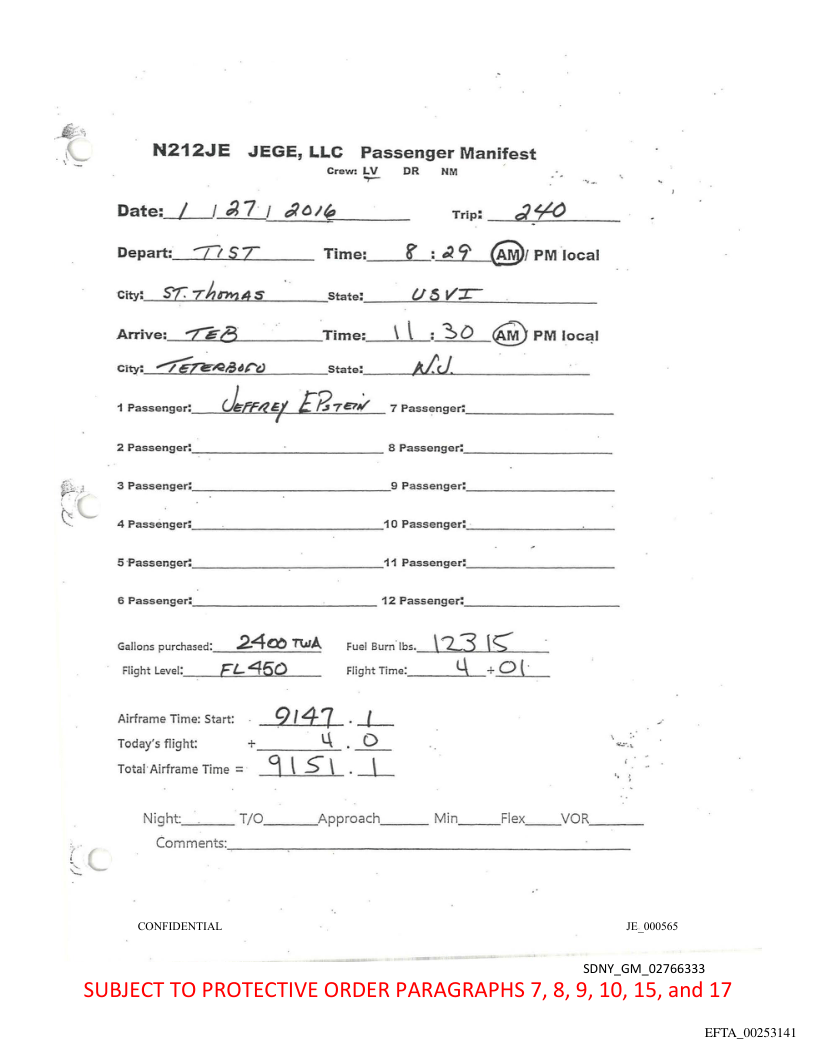 N212JE JEGE, LLC Passenger Manifest
Crew: LV DR NM
Date: 1 / 27 / 2016 Trip: 240
Depart: TIST Time: 8 : 29 AM/ PM local
City: ST. THOMAS State: USVI
Arrive: TEB Time: 11 : 30 AM/ PM local
City: TETERBORO State: N.J.
1 Passenger: JEFFREY EPSTEIN 7 Passenger:
2 Passenger: 8 Passenger:
3 Passenger: 9 Passenger:
4 Passenger: 10 Passenger:
5 Passenger: 11 Passenger:
6 Passenger: 12 Passenger:
Gallons purchased: 2400 TWA Fuel Burn lbs. 12315
Flight Level: FL450 Flight Time: 4 + 01
Airframe Time: Start: 9147 . 1
Today's flight: + 4 . 0
Total Airframe Time = 9151 . 1
Night: T/O Approach Min Flex VOR
Comments:
CONFIDENTIAL JE_000565
SDNY_GM_02766333
SUBJECT TO PROTECTIVE ORDER PARAGRAPHS 7, 8, 9, 10, 15, and 17
EFTA_00253141